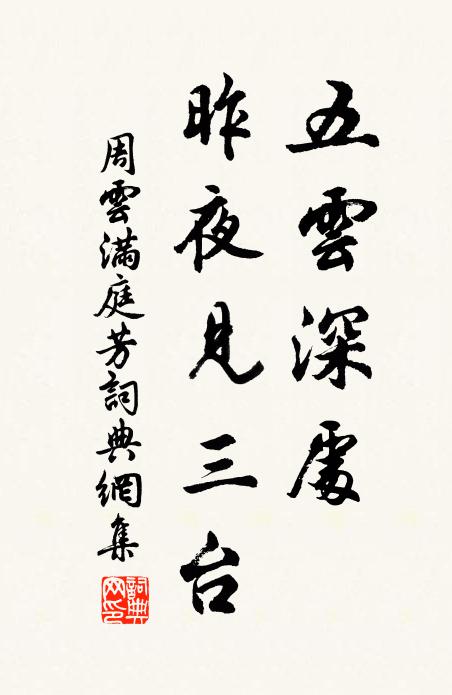 五雲深處
昨夜見三台
周雲滿庭芳詞典網集
詞典網印